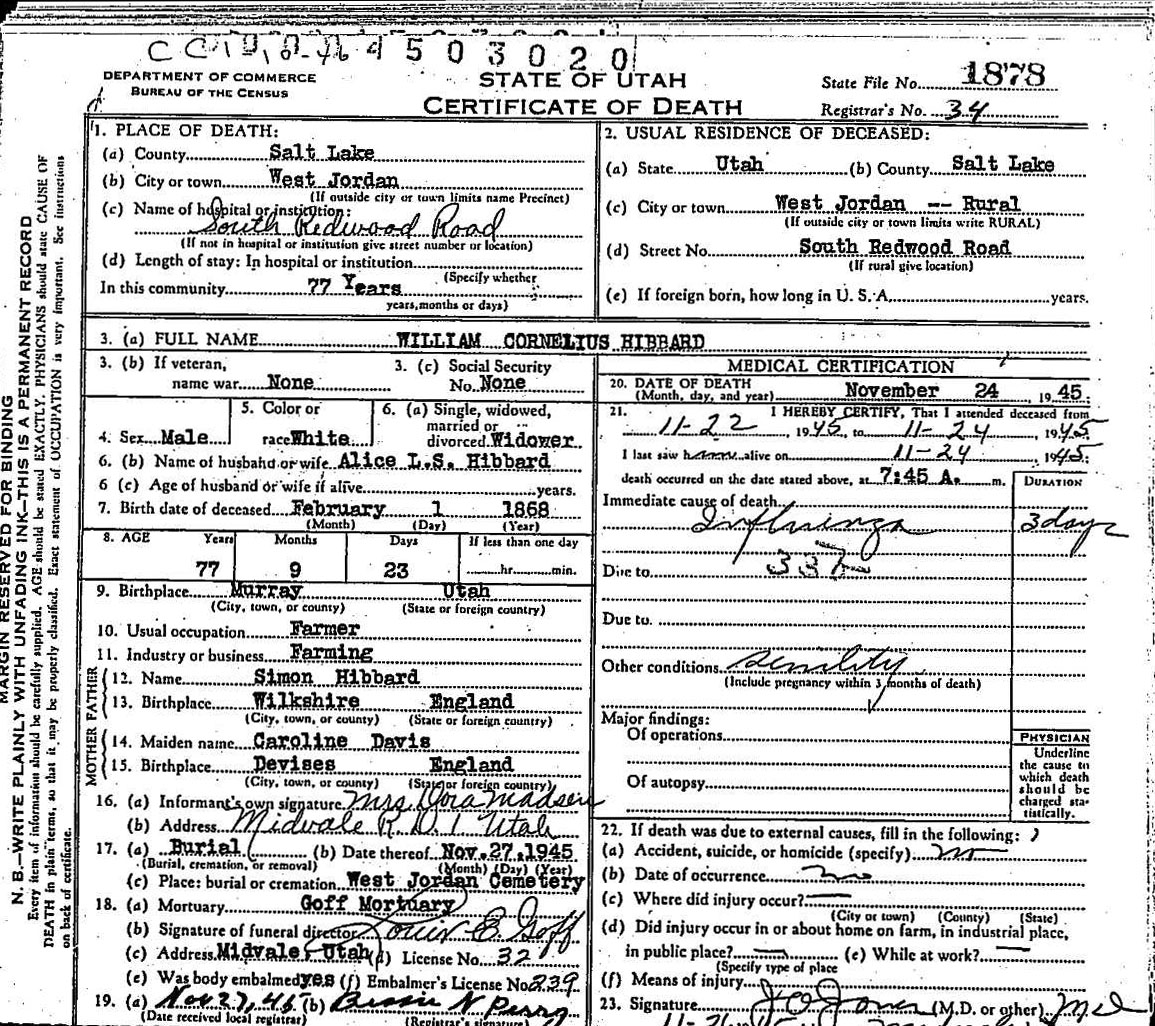 4 5 0 3 0 2 0
DEPARTMENT OF COMMERCE
BUREAU OF THE CENSUS
STATE OF UTAH
CERTIFICATE OF DEATH
State File No. 1878
Registrar's No. 34
MARGIN RESERVED FOR BINDING
N. B.—WRITE PLAINLY WITH UNFADING INK—THIS IS A PERMANENT RECORD
Every item of information should be carefully supplied. AGE should be stated EXACTLY. PHYSICIANS should state CAUSE OF
DEATH in plain terms, so that it may be properly classified. Exact statement of OCCUPATION is very important. See instructions
on back of certificate.
1. PLACE OF DEATH:
(a) County Salt Lake
(b) City or town West Jordan
(If outside city or town limits name Precinct)
(c) Name of hospital or institution:
South Redwood Road
(If not in hospital or institution give street number or location)
(d) Length of stay: In hospital or institution
(Specify whether
In this community 77 Years
years, months or days)
2. USUAL RESIDENCE OF DECEASED:
(a) State Utah (b) County Salt Lake
(c) City or town West Jordan -- Rural
(If outside city or town limits write RURAL)
(d) Street No. South Redwood Road
(If rural give location)
(e) If foreign born, how long in U. S. A. years.
3. (a) FULL NAME WILLIAM CORNELIUS HIBBARD
3. (b) If veteran,
name war None
3. (c) Social Security
No. None
4. Sex Male
5. Color or
race White
6. (a) Single, widowed,
married or
divorced Widower
6. (b) Name of husband or wife Alice L.S. Hibbard
6 (c) Age of husband or wife if alive years.
7. Birth date of deceased February 1 1868
(Month) (Day) (Year)
8. AGE Years Months Days If less than one day
77 9 23 hr. min.
9. Birthplace Murray Utah
(City, town, or county) (State or foreign country)
10. Usual occupation Farmer
11. Industry or business Farming
FATHER
12. Name Simon Hibbard
13. Birthplace Wilkshire England
(City, town, or county) (State or foreign country)
MOTHER
14. Maiden name Caroline Davis
15. Birthplace Devises England
(City, town, or county) (State or foreign country)
16. (a) Informant's own signature Mrs Dora Madsen
(b) Address Midvale R.D. 1 Utah
17. (a) Burial (b) Date thereof Nov. 27, 1945
(Burial, cremation, or removal) (Month) (Day) (Year)
(c) Place: burial or cremation West Jordan Cemetery
18. (a) Mortuary Goff Mortuary
(b) Signature of funeral director Louis E. Goff
(c) Address Midvale, Utah (d) License No. 32
(e) Was body embalmed yes (f) Embalmer's License No 239
19. (a) Nov 27, (b) Bessie N Perry
(Date received local registrar) (Registrar's signature)
MEDICAL CERTIFICATION
20. DATE OF DEATH
(Month, day, and year) November 24 , 1945
21. I HEREBY CERTIFY, That I attended deceased from
11-22 1945, to 11-24 1945
I last saw him alive on 11-24 1945
death occurred on the date stated above, at 7:45 A. m.
DURATION
Immediate cause of death
Influenza 3 days
Due to
Due to
Other conditions senility
(Include pregnancy within 3 months of death)
Major findings:
Of operations
Of autopsy
PHYSICIAN
Underline
the cause to
which death
should be
charged sta-
tistically.
22. If death was due to external causes, fill in the following:
(a) Accident, suicide, or homicide (specify) no
(b) Date of occurrence no
(c) Where did injury occur?
(City or town) (County) (State)
(d) Did injury occur in or about home on farm, in industrial place,
in public place? (e) While at work?
(Specify type of place
(f) Means of injury
23. Signature J O Jones (M.D. or other) M D